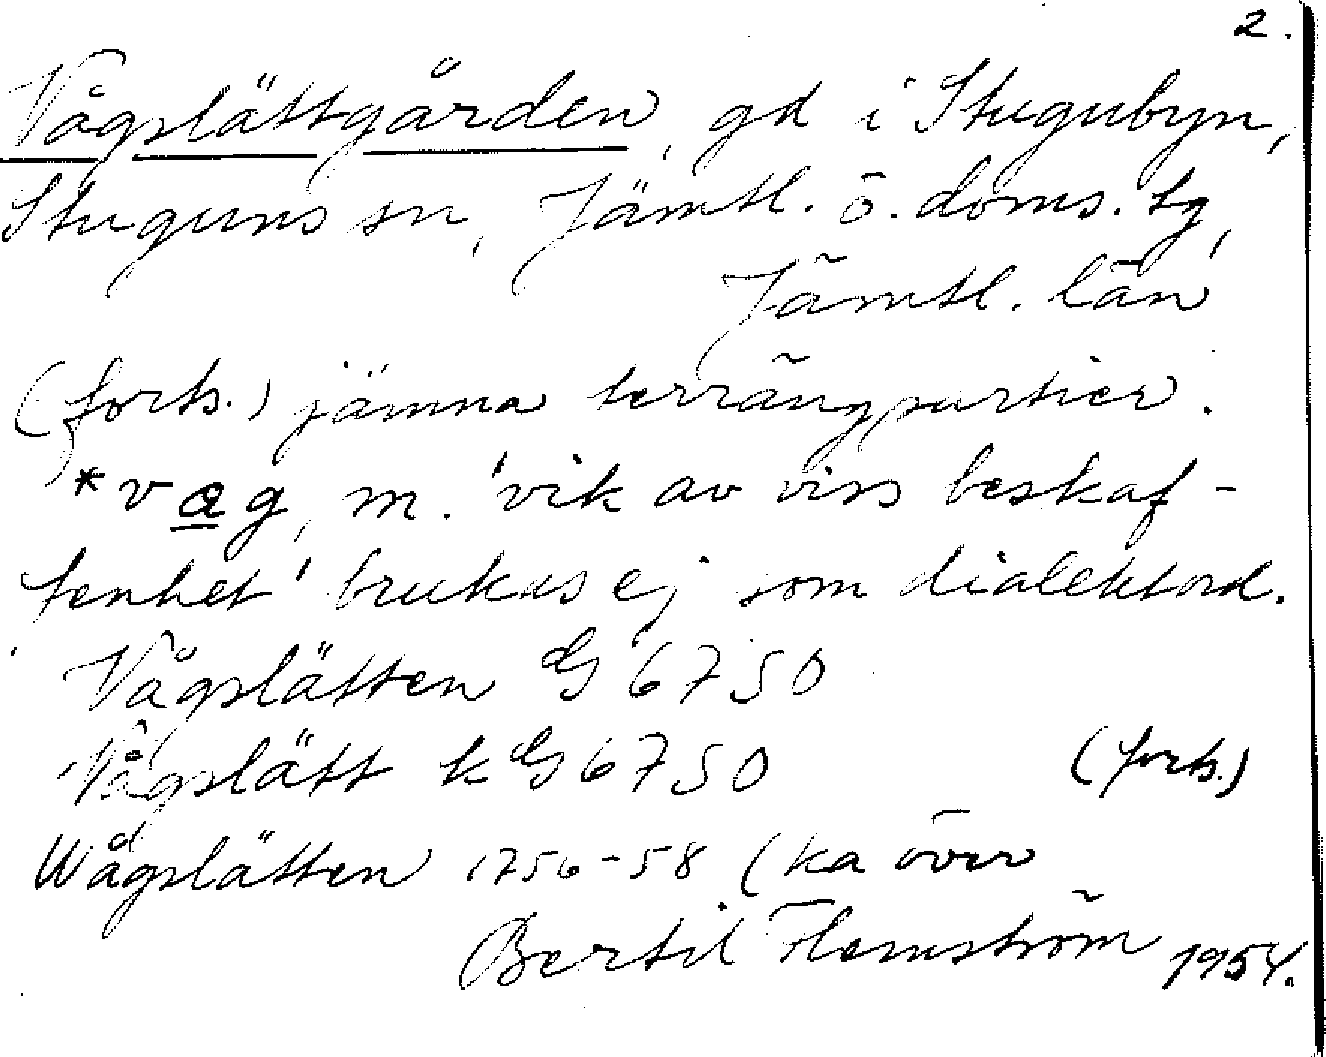 2.
Vågslättgården, gd i Stugubyn,
Stuguns sn, Jämtl. ö. doms. tg,
Jämtl. län
(forts.) jämna terrängpartier.
*vag, m. 'vik av viss beskaf-
fenhet' brukas ej som dialektord.
Vågslätten G 6750
Vågslätt k G 6750 (forts.)
Wågslätten 1756-58 (ka över
Bertil Flemström 1954.